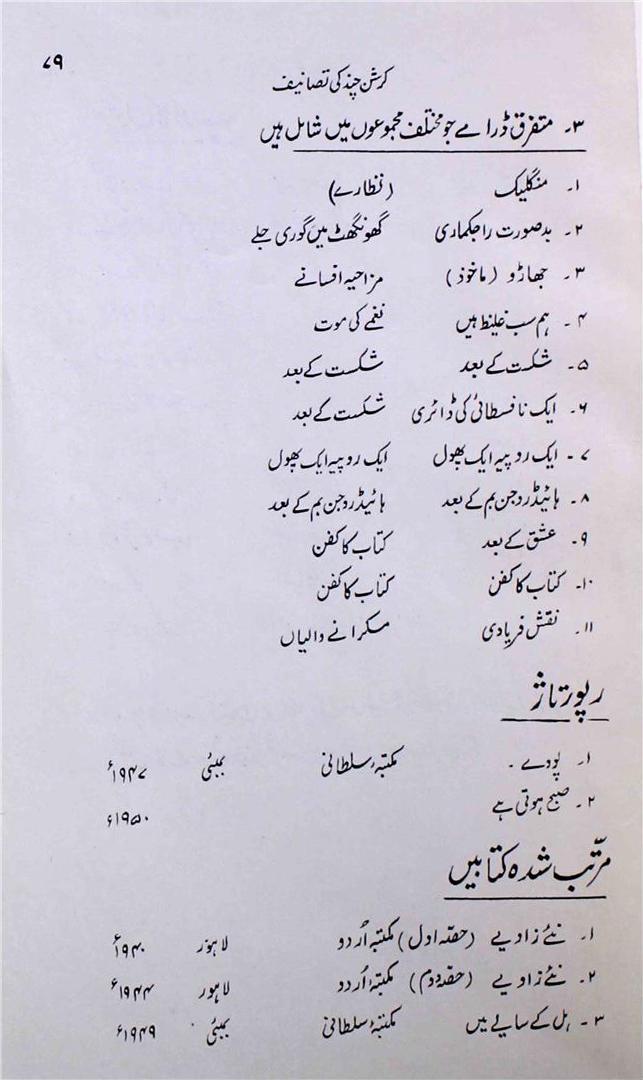 ۷۹
کرشن چندکی تصانیف
۳۔ متفرق ڈرامے جو مختلف مجموعوں میں شامل ہیں
۱۔ منگلیک (نظارے)
۲۔ بدصورت راجکماری گھونگھٹ میں گوری جلے
۳۔ جھاڑو (ماخوذ) مزاحیہ افسانے
۴۔ ہم سب غلیظ ہیں نغمے کی موت
۵۔ شکست کے بعد شکست کے بعد
۶۔ ایک نافسطائی کی ڈائری شکست کے بعد
۷۔ ایک روپیہ ایک پھول ایک روپیہ ایک پھول
۸۔ ہائیڈروجن بم کے بعد ہائیڈروجن بم کے بعد
۹۔ عشق کے بعد کتاب کا کفن
۱۰۔ کتاب کا کفن کتاب کا کفن
۱۱۔ نقش فریادی مسکرانے والیاں
رپورتاژ
۱۔ پودے ۔ مکتبۂ سلطانی بمبئی ۱۹۴۷ء
۲۔ صبح ہوتی ہے ۱۹۵۰ء
مرتّب شدہ کتابیں
۱۔ نئے زاویے (حصّہ اول) مکتبہ اُردو لاہور ۱۹۴۰ء
۲۔ نئے زاویے (حصّہ دوم) مکتبۂ اُردو لاہور ۱۹۴۴ء
۳۔ ہل کے سایے میں مکتبۂ سلطانی بمبئی ۱۹۴۹ء